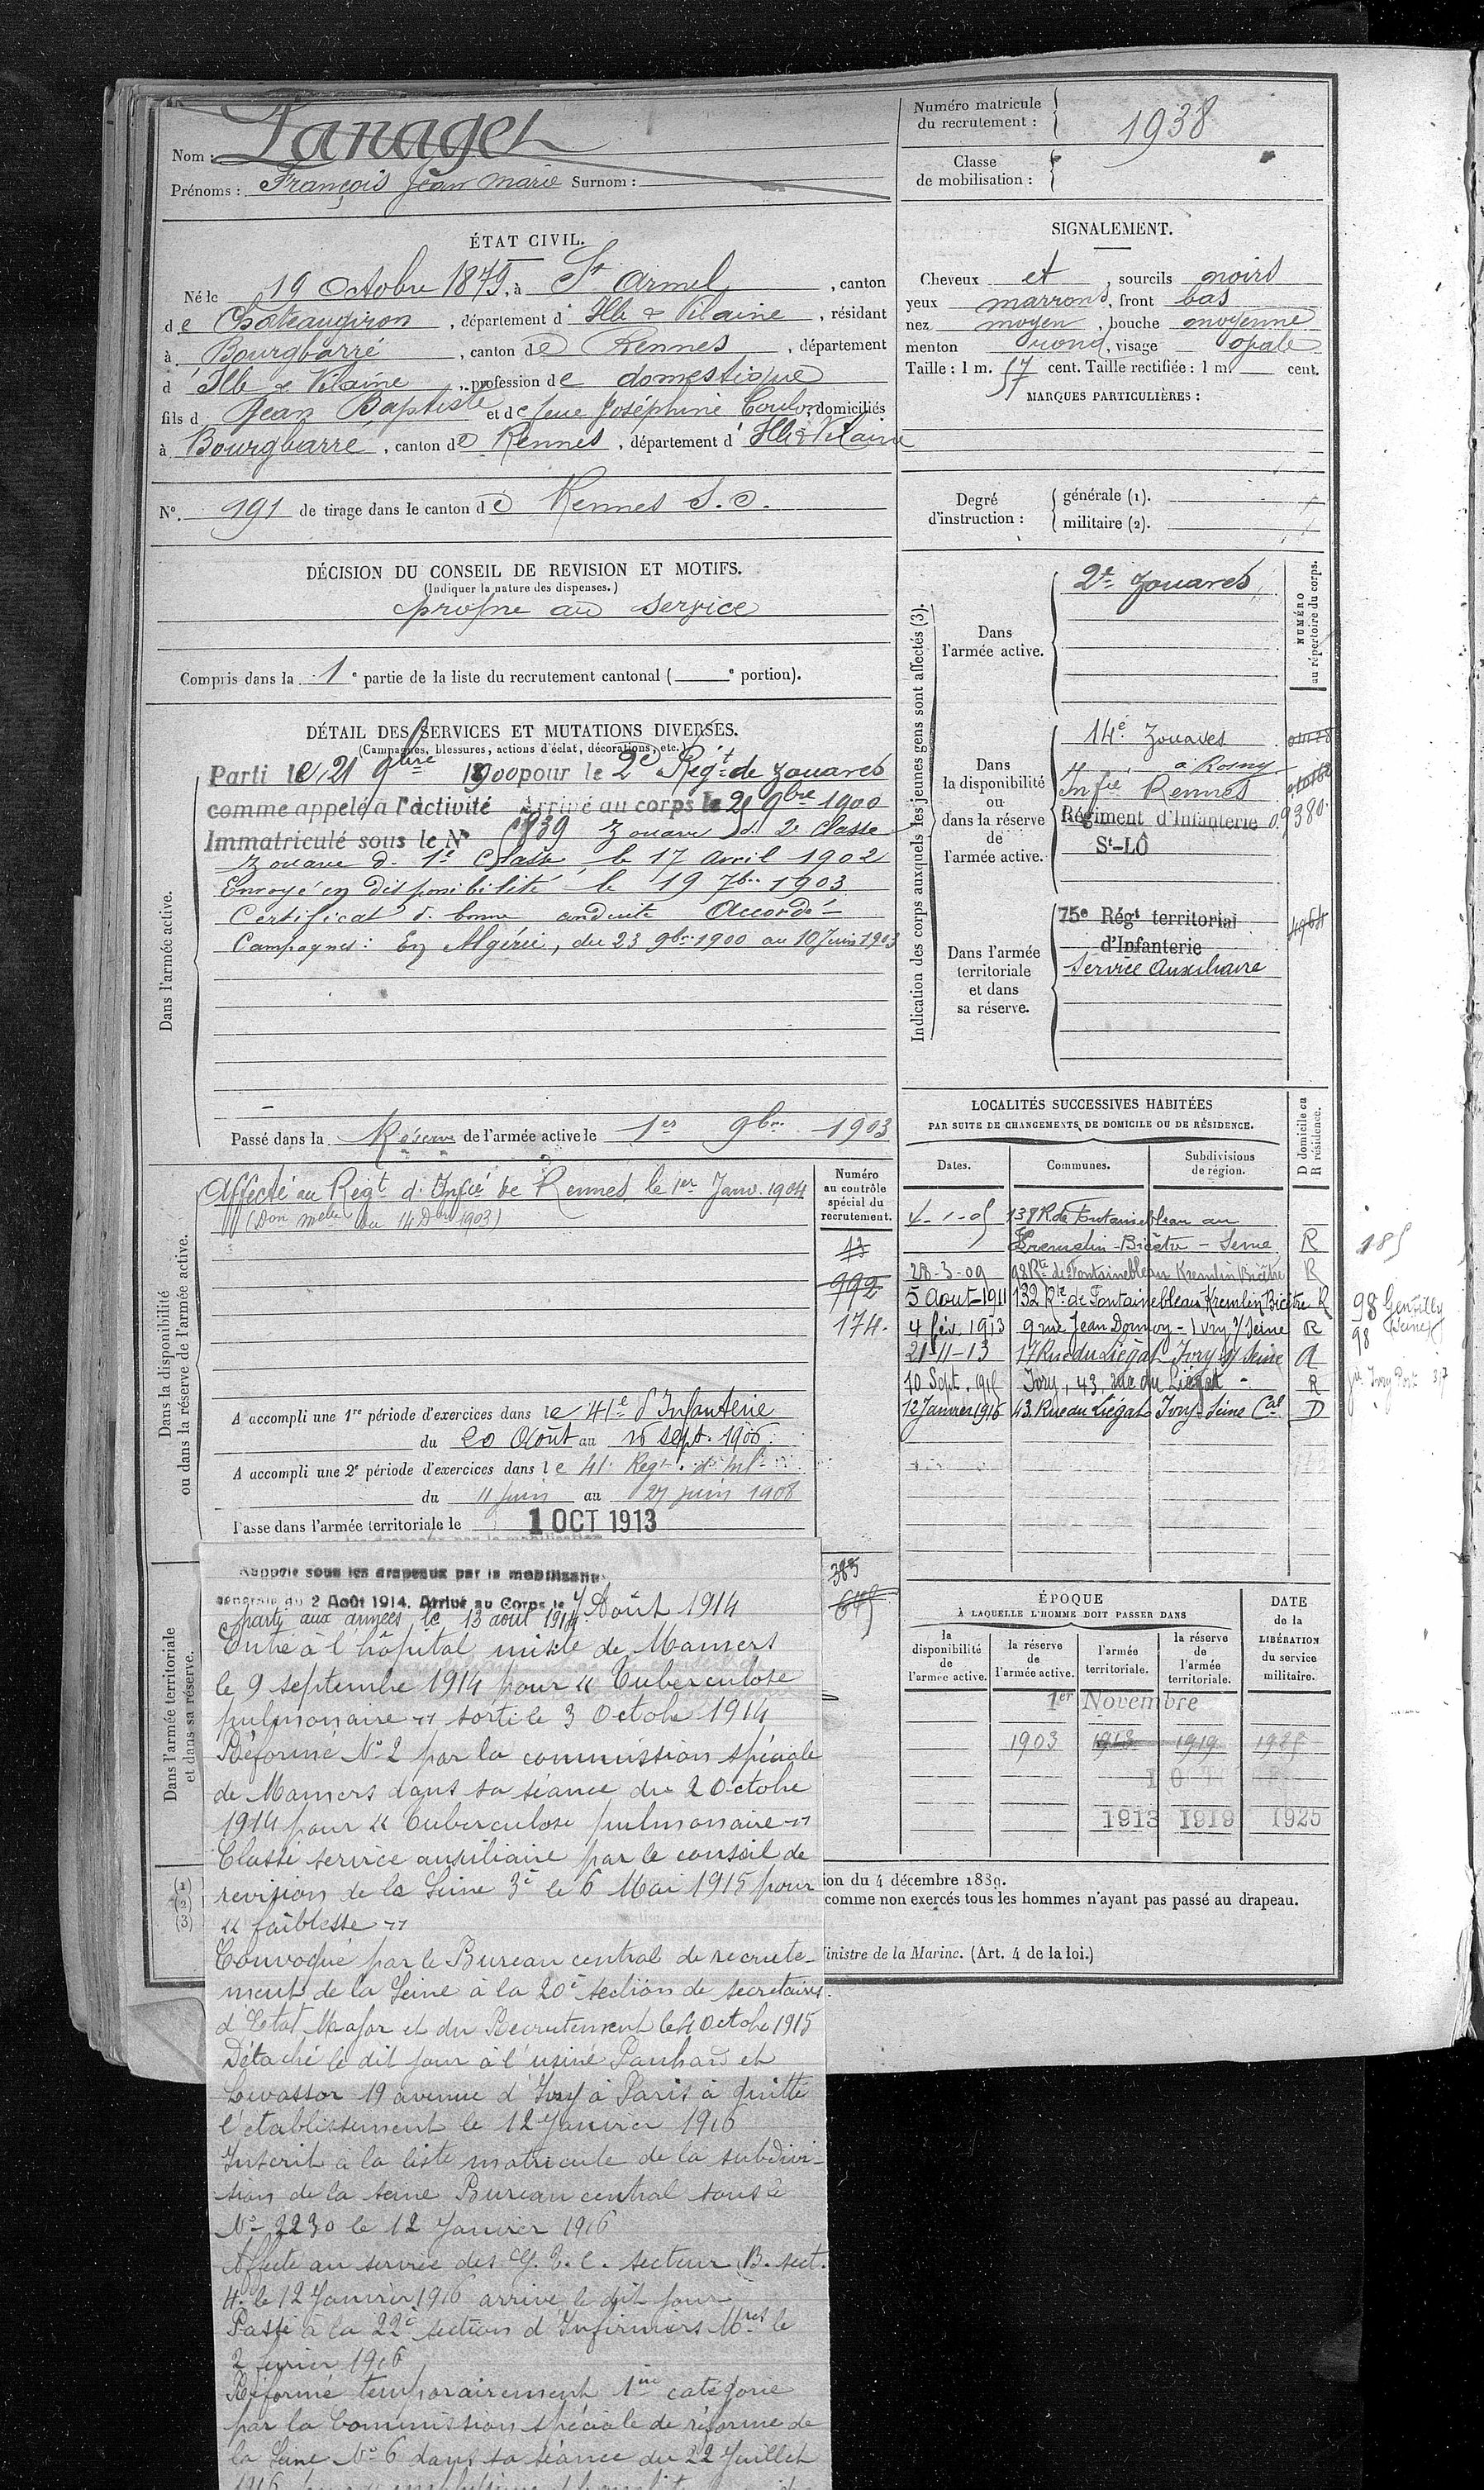 Nom : Panaget
Prénoms : François Jean Marie Surnom :
Numéro matricule du recrutement : 1938
Classe de mobilisation :
ÉTAT CIVIL.
Né le 19 Octobre 1879, à St Armel, canton
de Châteaugiron, département d'Ille & Vilaine, résidant
à Bourgbarré, canton de Rennes, département
d'Ille & Vilaine, profession de domestique
fils d Jean Baptiste et de feue Joséphine, domiciliés
à Bourgbarré, canton de Rennes, département d'Ille & Vilaine
N° 191 de tirage dans le canton de Rennes S. O.
DÉCISION DU CONSEIL DE REVISION ET MOTIFS.
(Indiquer la nature des dispenses.)
propre au service
Compris dans la 1e partie de la liste du recrutement cantonal ( e portion).
SIGNALEMENT.
Cheveux et, sourcils noirs
yeux marrons, front bas
nez moyen, bouche moyenne
menton rond, visage ovale
Taille : 1 m. 57 cent. Taille rectifiée : 1 m. cent.
MARQUES PARTICULIÈRES :
Degré d'instruction : générale (1).
militaire (2).
DÉTAIL DES SERVICES ET MUTATIONS DIVERSES.
(Campagnes, blessures, actions d'éclat, décorations, etc.)
Dans l'armée active.
Parti le 21 9bre 1900 pour le 2e Régt de Zouaves
comme appelé à l'activité Arrivé au corps le 21 9bre 1900
Immatriculé sous le N° 939 Zouave de 2e Classe
Zouave d. 1e Classe le 17 Avril 1902
Envoyé en disponibilité le 19 7bre 1903
Certificat d. bonne conduite Accordé
Campagnes : En Algérie, du 23 9bre 1900 au 10 Juin 1903
Passé dans la Réserve de l'armée active le 1er 9bre 1903
Indication des corps auxquels les jeunes gens sont affectés (3).
NUMÉRO au répertoire du corps.
Dans l'armée active.
2e Zouaves
Dans la disponibilité ou dans la réserve de l'armée active.
14e Zouaves
à Rosny
Infie Rennes
Régiment d'Infanterie 09380
St-LÔ
Dans l'armée territoriale et dans sa réserve.
75e Régt territorial
d'Infanterie
Service Auxiliaire
Dans la disponibilité ou dans la réserve de l'armée active.
Numéro au contrôle spécial du recrutement.
Affecté au Régt d'Infie de Rennes le 1er Janv. 1904
(Don melle du 14 Dbre 1903)
13
992
174.
A accompli une 1re période d'exercices dans le 41e d'Infanterie
du 20 Août au 16 Sept. 1906
A accompli une 2e période d'exercices dans le 41e Regt d'Infie
du 11 juin au 27 juin 1908
Passé dans l'armée territoriale le 1 OCT 1913
LOCALITÉS SUCCESSIVES HABITÉES
PAR SUITE DE CHANGEMENTS DE DOMICILE OU DE RÉSIDENCE.
Dates. Communes. Subdivisions de région. D domicile ou R résidence.
4-1-05 138 R. de Fontainebleau au
Kremlin-Bicêtre - Seine R 185
28-3-09 98 Rte de Fontainebleau Kremlin Bicêtre R
5 Aout-1911 132 Rte de Fontainebleau Kremlin Bicêtre R 98 Gentilly
4 fév. 1913 9 rue Jean Dormoy - Ivry s/ Seine R 98
21-11-13 17 Rue du Liégat Ivry s/ Seine R
10 Sept. 1915 Ivry, 43, rue du Liégat R
12 Janvier 1916 43. Rue du Liégat Ivry-Seine Cal D
Dans l'armée territoriale et dans sa réserve.
Rappelé sous les drapeaux par la mobilisation
générale du 2 Août 1914. Arrivé au Corps le 7 Août 1914
parti aux armées le 13 août 1914
Entré à l'hôpital mixte de Mamers
le 9 septembre 1914 pour « Tuberculose
pulmonaire » sorti le 3 Octobre 1914
Réformé N° 2 par la commission spéciale
de Mamers dans sa séance du 2 Octobre
1914 pour « Tuberculose pulmonaire »
Classé service auxiliaire par le conseil de
revision de la Seine 3e le 6 Mai 1915 pour
« faiblesse »
Convoqué par le Bureau central de recrute-
ment de la Seine à la 20e section de secretaires
d'Etat Major et du Recrutement le 4 Octobre 1915
Détaché le dit jour à l'usine Panhard et
Levassor 19 avenue d'Ivry à Paris à quitté
l'établissement le 12 Janvier 1916
Inscrit à la liste matricule de la subdivi-
sion de la Seine Bureau central sous le
N° 2230 le 12 Janvier 1916
Affecté au service des G. V. C. secteur B. sect.
4. le 12 Janvier 1916 arrivé le dit jour
Passé à la 22e section d'Infirmiers Mres le
2 février 1916
Réformé temporairement 1ère catégorie
par la Commission spéciale de réforme de
la Seine N° 6 dans sa séance du 22 Juillet
1916
ÉPOQUE
À LAQUELLE L'HOMME DOIT PASSER DANS
la disponibilité de l'armée active. la réserve de l'armée active. l'armée territoriale. la réserve de l'armée territoriale. DATE de la LIBÉRATION du service militaire.
1er Novembre
1903 1913 1919 1925
1913 1919 1925
(1) (2) (3)
ion du 4 décembre 1889.
comme non exercés tous les hommes n'ayant pas passé au drapeau.
inistre de la Marine. (Art. 4 de la loi.)